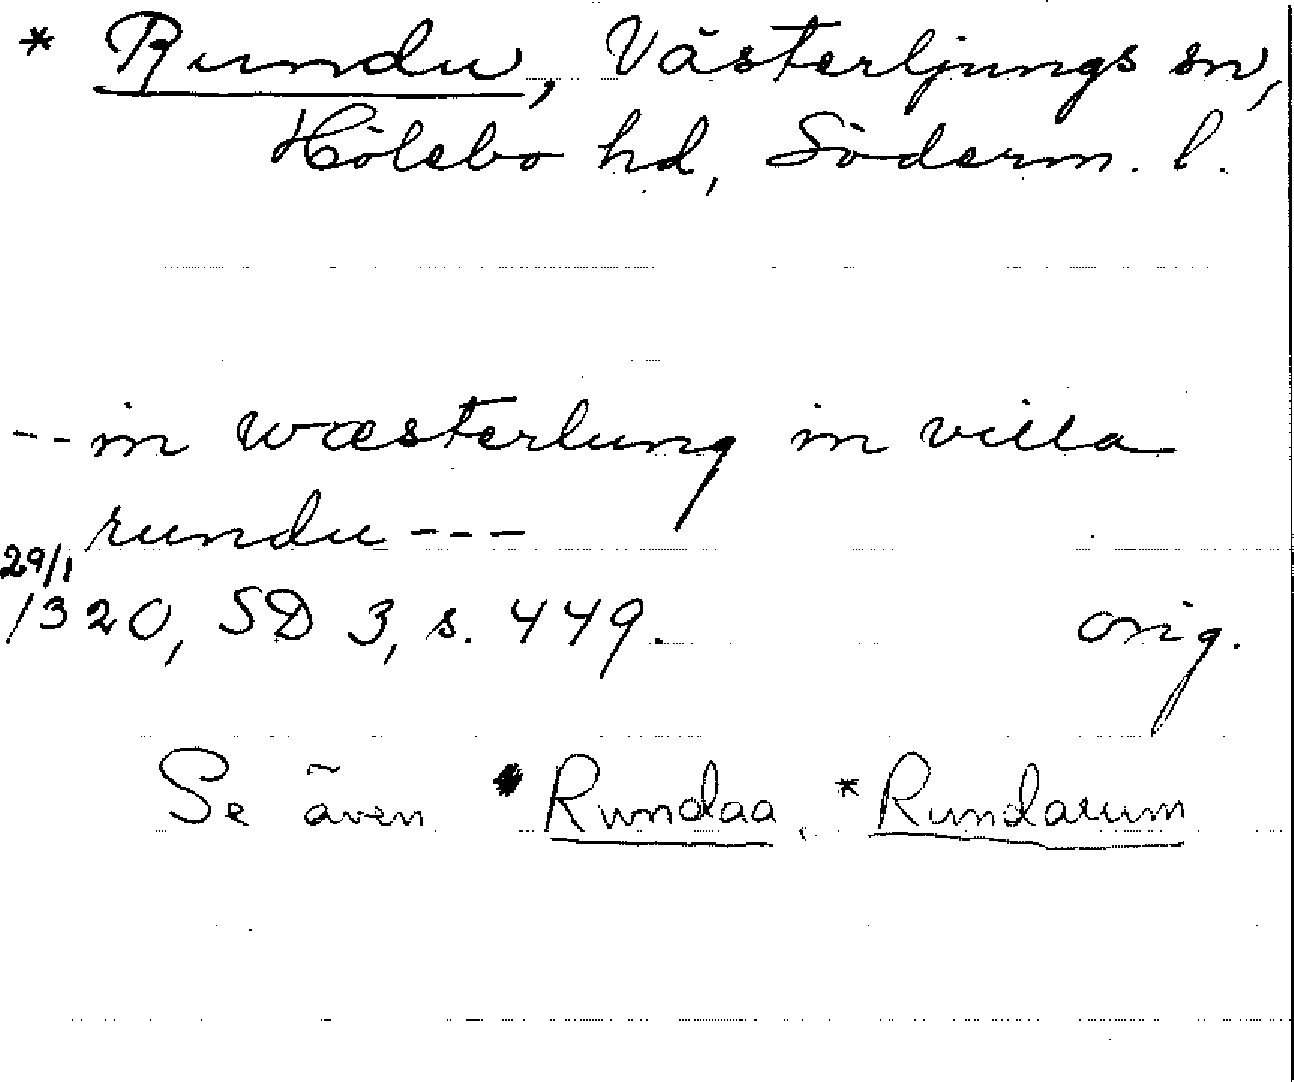 * Rundu, Västerljungs sn,
Hölebo hd, Söderm. l.
-- in wæsterlung in villa
rundu ---
29/1
1320, SD 3, s. 449. orig.
Se även * Rundaa, * Rundarum